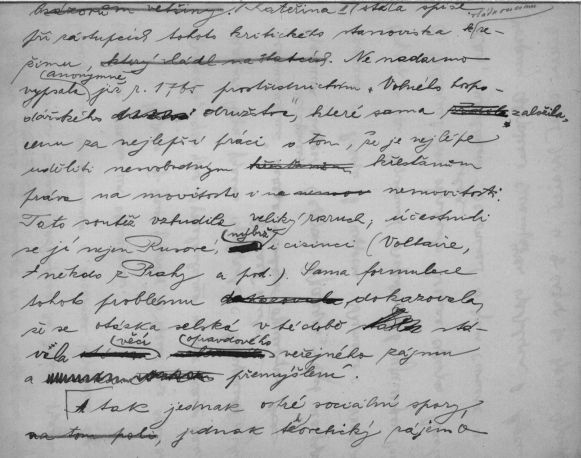 názorům většiny. Kateřina II stála spíše
při zástupcích tohoto kritického stanoviska k re-
žimu, který vládl na statcích. Ne nadarmo
vypsala (anonymně) již r. 1765 prostřednictvím „Volného hospo-
dářského družstva", které sama založila,
cenu za nejlepší práci o tom, že je nejlépe
uděliti nesvobodným křesťanům
práva na movitosti i na nemovitosti.
Tato soutěž vzbudila veliký rozruch; účastnili
se jí nejen Rusové, nýbrž i cizinci (Voltaire,
někdo z Prahy a pod.). Sama formulace
tohoto problému dokazovala,
že se otázka selská v té době stá-
vala věcí opravdového veřejného zájmu
a přemýšlení.
A tak jednak ostré sociální spory,
na tom poli, jednak theoretický zájem o